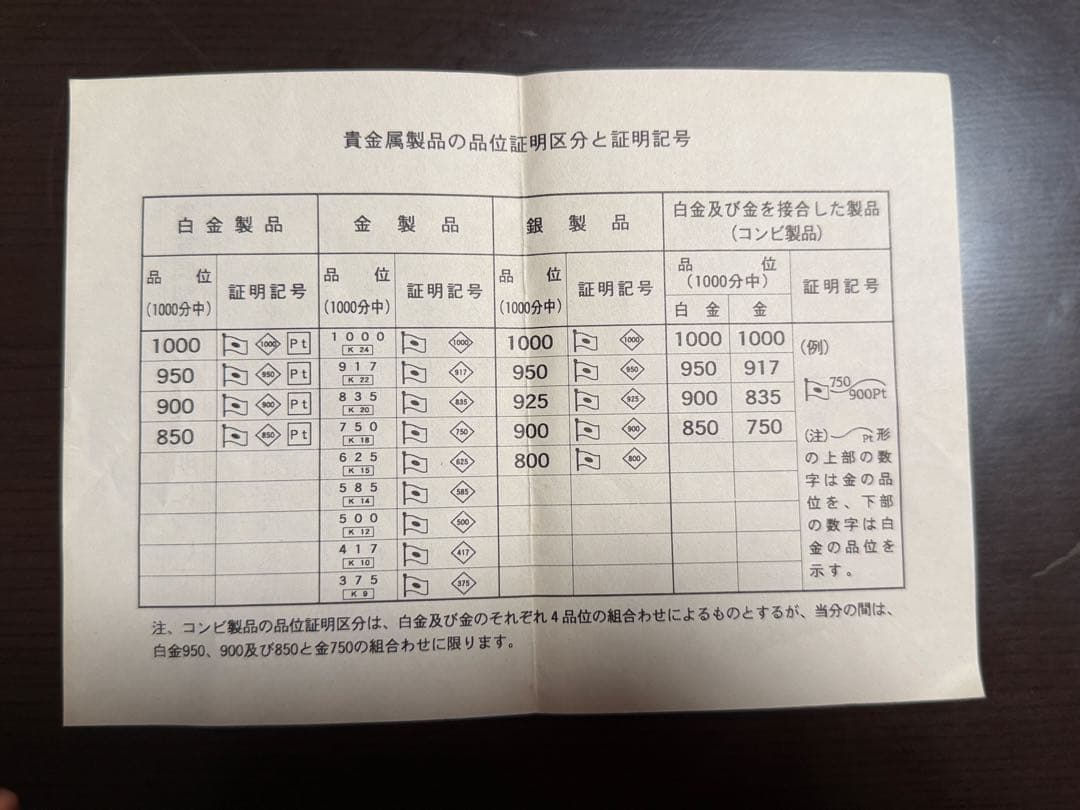 貴金属製品の品位証明区分と証明記号
白金製品 金製品 銀製品 白金及び金を接合した製品
(コンビ製品)
品位 (1000分中) 証明記号 品位 (1000分中) 証明記号 品位 (1000分中) 証明記号 品位 (1000分中) 証明記号
白金 金
1000 1000 Pt 1000 K 24 1000 1000 1000 1000 1000
950 950 Pt 917 K 22 917 950 950 950 917
900 900 Pt 835 K 20 835 925 925 900 835
850 850 Pt 750 K 18 750 900 900 850 750
625 K 15 625 800 800
585 K 14 585
500 K 12 500
417 K 10 417
375 K 9 375
(例)
750
900Pt
(注) Pt形
の上部の数
字は金の品
位を、下部
の数字は白
金の品位を
示す。
注、コンビ製品の品位証明区分は、白金及び金のそれぞれ4品位の組合わせによるものとするが、当分の間は、
白金950、900及び850と金750の組合わせに限ります。